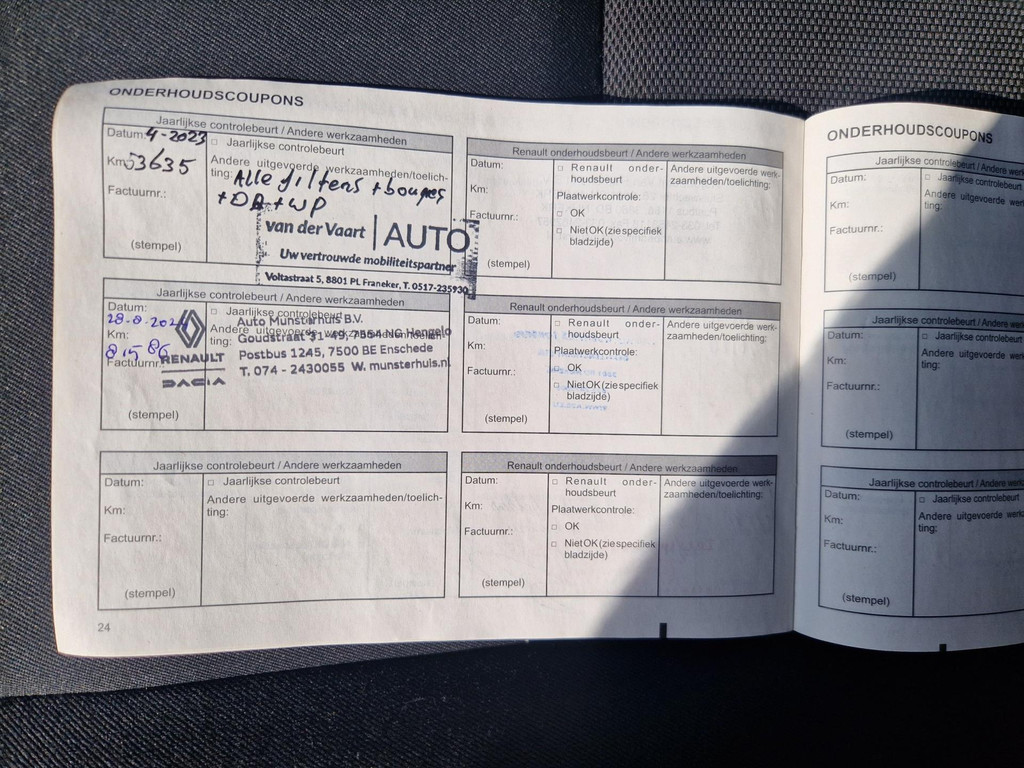 ONDERHOUDSCOUPONS
Jaarlijkse controlebeurt / Andere werkzaamheden
Datum: 4-2023
□ Jaarlijkse controlebeurt
Km: 53635
Andere uitgevoerde werkzaamheden/toelich-
ting: Alle filters + bougies
+ DR + WP
Factuurnr.:
van der Vaart | AUTO
Uw vertrouwde mobiliteitspartner
Voltastraat 5, 8801 PL Franeker, T. 0517-235930
(stempel)
Jaarlijkse controlebeurt / Andere werkzaamheden
Datum:
□ Jaarlijkse controlebeurt
Km:
Andere uitgevoerde werkzaamheden/toelich-
ting:
Factuurnr.:
RENAULT
DACIA
Auto Munsterhuis B.V.
Goudstraat 31-49, 7554 NG Hengelo
Postbus 1245, 7500 BE Enschede
T. 074 - 2430055 W. munsterhuis.nl
(stempel)
Jaarlijkse controlebeurt / Andere werkzaamheden
Datum:
□ Jaarlijkse controlebeurt
Km:
Andere uitgevoerde werkzaamheden/toelich-
ting:
Factuurnr.:
(stempel)
24
Renault onderhoudsbeurt / Andere werkzaamheden
Datum:
Km:
Factuurnr.:
(stempel)
□ Renault onder-
houdsbeurt
Plaatwerkcontrole:
□ OK
□ Niet OK (zie specifiek
bladzijde)
Andere uitgevoerde werk-
zaamheden/toelichting:
Renault onderhoudsbeurt / Andere werkzaamheden
Datum:
Km:
Factuurnr.:
(stempel)
□ Renault onder-
houdsbeurt
Plaatwerkcontrole:
□ OK
□ Niet OK (zie specifiek
bladzijde)
Andere uitgevoerde werk-
zaamheden/toelichting:
Renault onderhoudsbeurt / Andere werkzaamheden
Datum:
Km:
Factuurnr.:
(stempel)
□ Renault onder-
houdsbeurt
Plaatwerkcontrole:
□ OK
□ Niet OK (zie specifiek
bladzijde)
Andere uitgevoerde werk-
zaamheden/toelichting:
ONDERHOUDSCOUPONS
Jaarlijkse controlebeurt / Andere
Datum:
□ Jaarlijkse controlebeurt
Km:
Andere uitgevoerde
ting:
Factuurnr.:
(stempel)
Jaarlijkse controlebeurt / Andere
Datum:
□ Jaarlijkse controlebeurt
Km:
Andere uitgevoerde
ting:
Factuurnr.:
(stempel)
Jaarlijkse controlebeurt / Andere
Datum:
□ Jaarlijkse controlebeurt
Km:
Andere uitgevoerde
ting:
Factuurnr.:
(stempel)